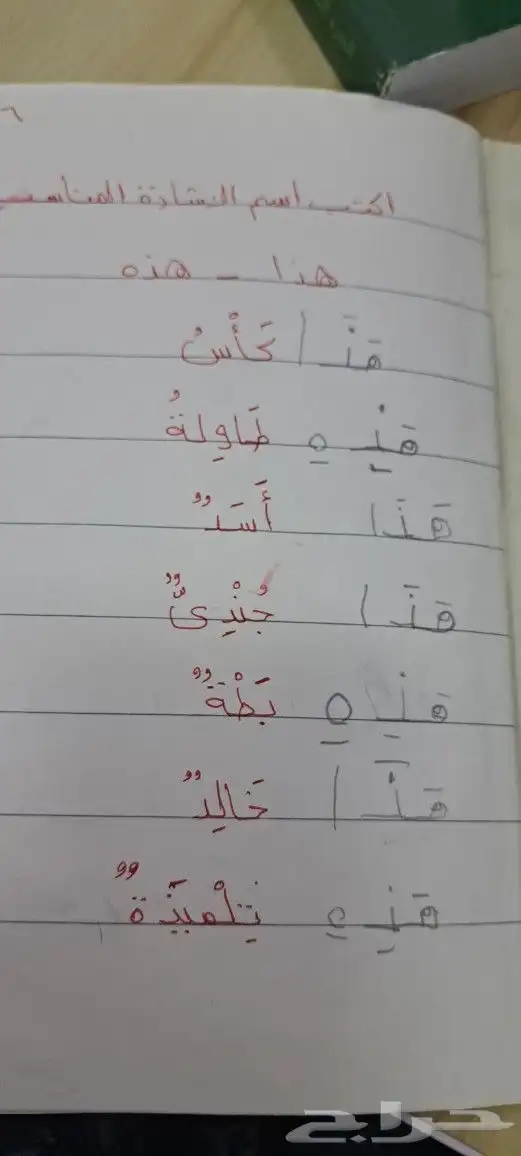 ٦
اكتب اسم الاشارة المناسب
هذا - هذه
هَذَا كَأْسُ
هَذِهِ طَاوِلةُ
هَذَا أَسَدٌ
هَذَا جُنْدِىٌّ
هَذِهِ بَطْةٌ
هَذَا خَالِدٌ
هَذِهِ تِلْمِيَذَةٌ
حراج